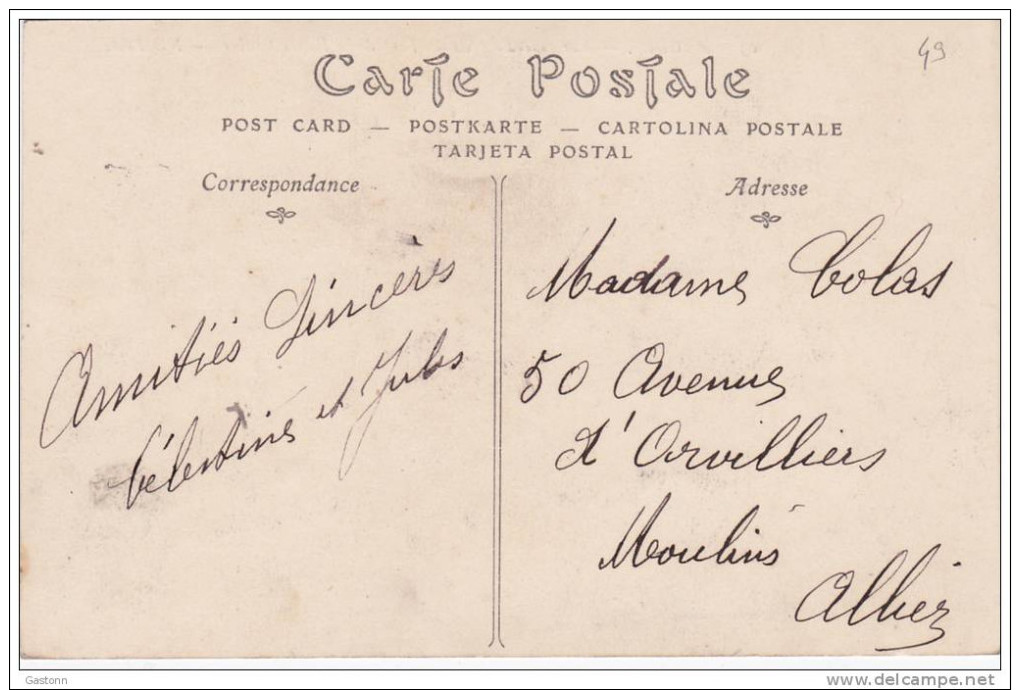 49
Carte Postale
POST CARD — POSTKARTE — CARTOLINA POSTALE
TARJETA POSTAL
Correspondance
Amitiés Sincères
Célestine et Jules
Adresse
Madame Colas
50 Avenue
d'Orvilliers
Moulins
Allier
Gastonn
www.delcampe.net